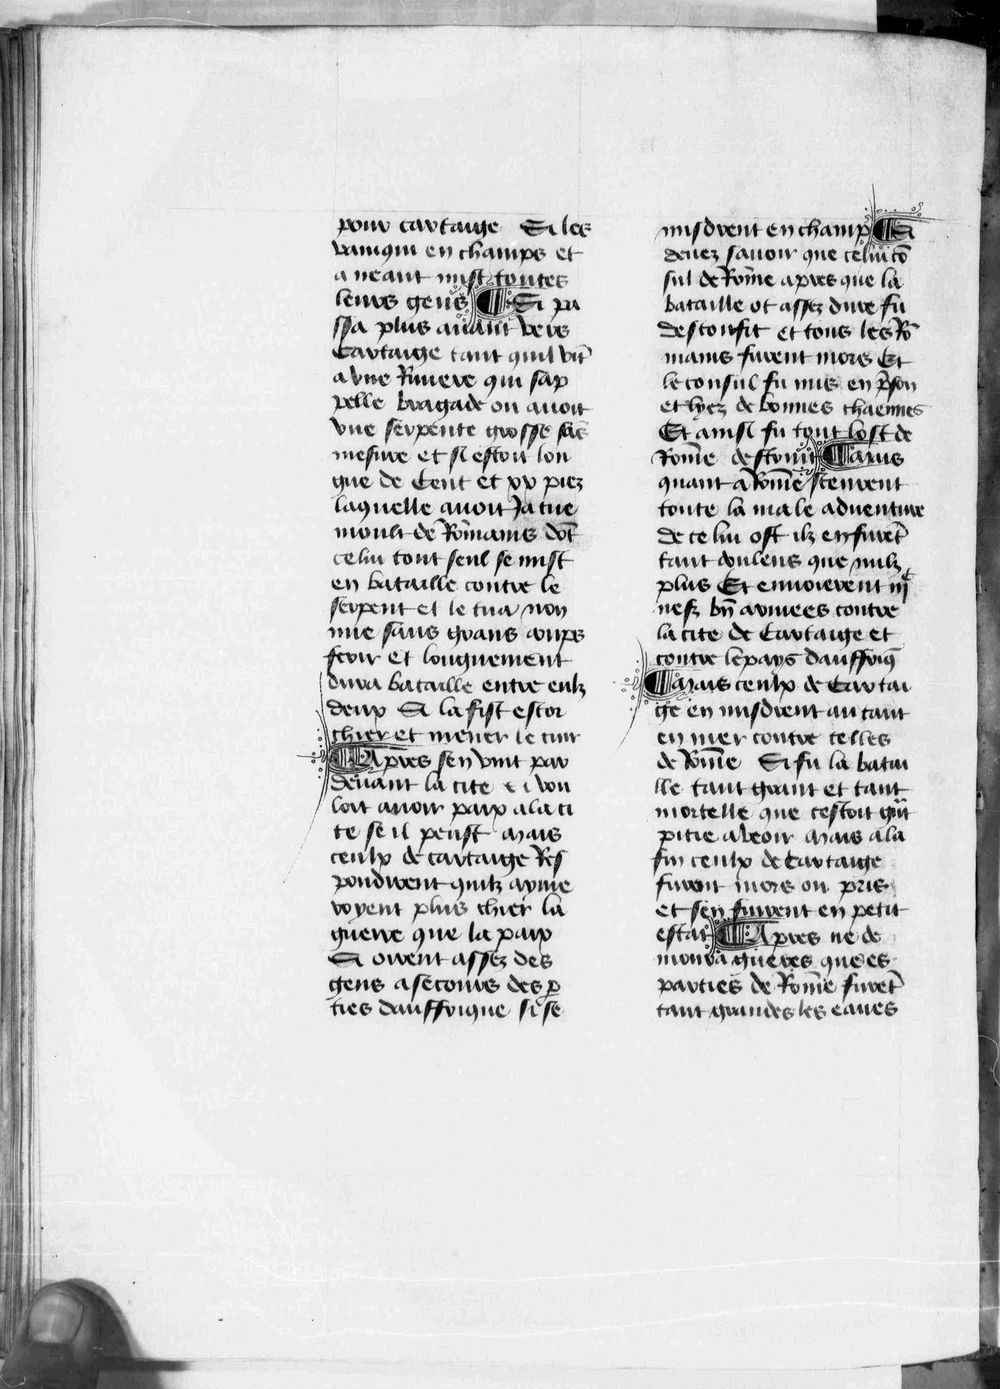 pour cartaige Si les
vainqui en champs et
a neant mist toutes
leurs gens ¶ Si pa
ssa plus auant vers
Cartaige tant quil vĩt
a vne Riuiere qui sap
pelle bragade ou auoit
vne serpente grosse sãs
mesure et si estoit lon
gue de Cent et xx piez
laquelle auoit Ja tue
moult de Rõmains dõt
celui tout seul se mist
en bataille contre le
serpent et le tua non
mie sans grans coups
ferir et longuement
dura bataille entre eulz
deux Si la fist escor
chier et mener le cuir
¶ Apres sen vint par
deuant la cite et vou
loit auoir paix a la ci
te se il peust Mais
ceulx de cartaige Res
pondirent quilz ayme
royent plus chier la
guerre que la paix
Si orent assez des
gens a secours des p̱
ties dauffrique si se
misdrent en champ ¶ Si
deuez sauoir que celui cõ
sul de Rõme apres que la
bataille ot assez dure fu
desconfit et tous les Rõ
mains furent mors Et
le consul fu mis en p̃son
et lyez de bonnes chaennes
Et ainsi fu tout lost de
Rõme desconfit ¶ Mais
quant a Rõme sceurent
toute la male aduenture
de celui ost ilz en furẽt
tant doulens que nulz
plus Et enuoierent iijᶜ
nefz bñ armees contre
la cite de Cartaige et
contre le pays dauffriq̃
¶ Mais ceulx de Cartai
ge en misdrent autant
en mer contre celles
de Rõme Si fu la batai
lle tant grant et tant
mortelle que cestoit grãt
pitie a veoir Mais a la
fin ceulx de Cartaige
furent mors ou pris
et sen fuirent en petit
estat ¶ Apres ne de
moura gueres que es
parties de Rõme furẽt
tant grandes les eaues